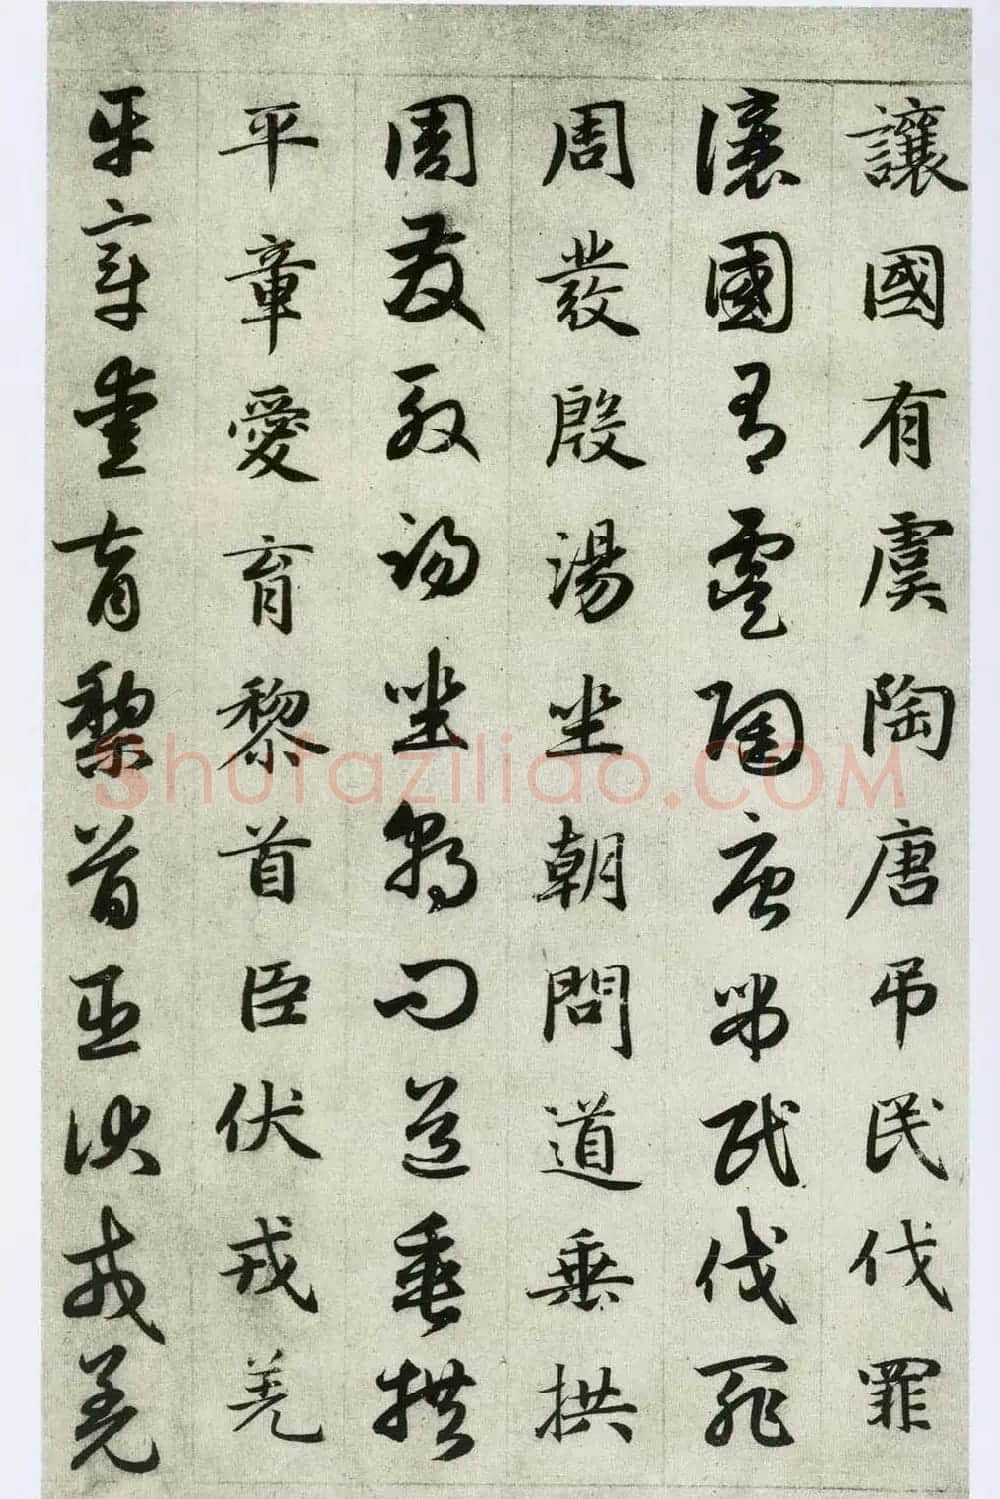 讓國有虞陶唐弔民伐罪
讓國有虞陶唐弔民伐罪
周發殷湯坐朝問道垂拱
周發殷湯坐朝問道垂拱
平章愛育黎首臣伏戎羌
平章愛育黎首臣伏戎羌
shufaziliao.COM